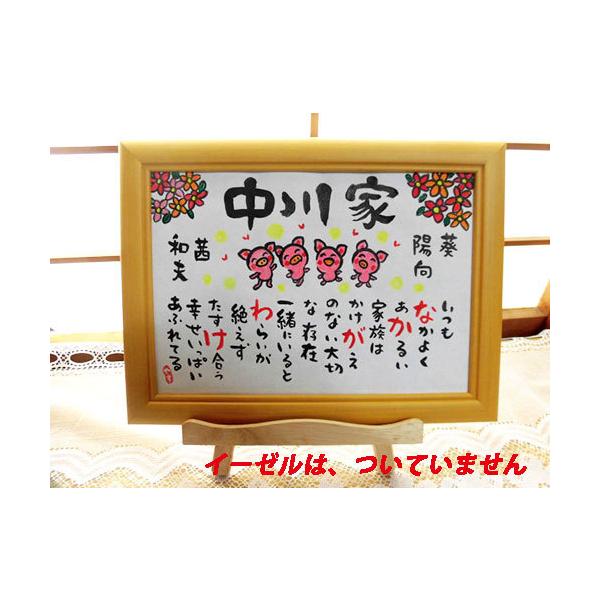 中川家
葵
陽向
茜
和夫
いつも
なかよく
あかるい
家族は
かけがえ
のない大切
な存在
一緒にいると
わらいが
絶えず
たすけ合う
幸せいっぱい
あふれてる
イーゼルは、ついていません